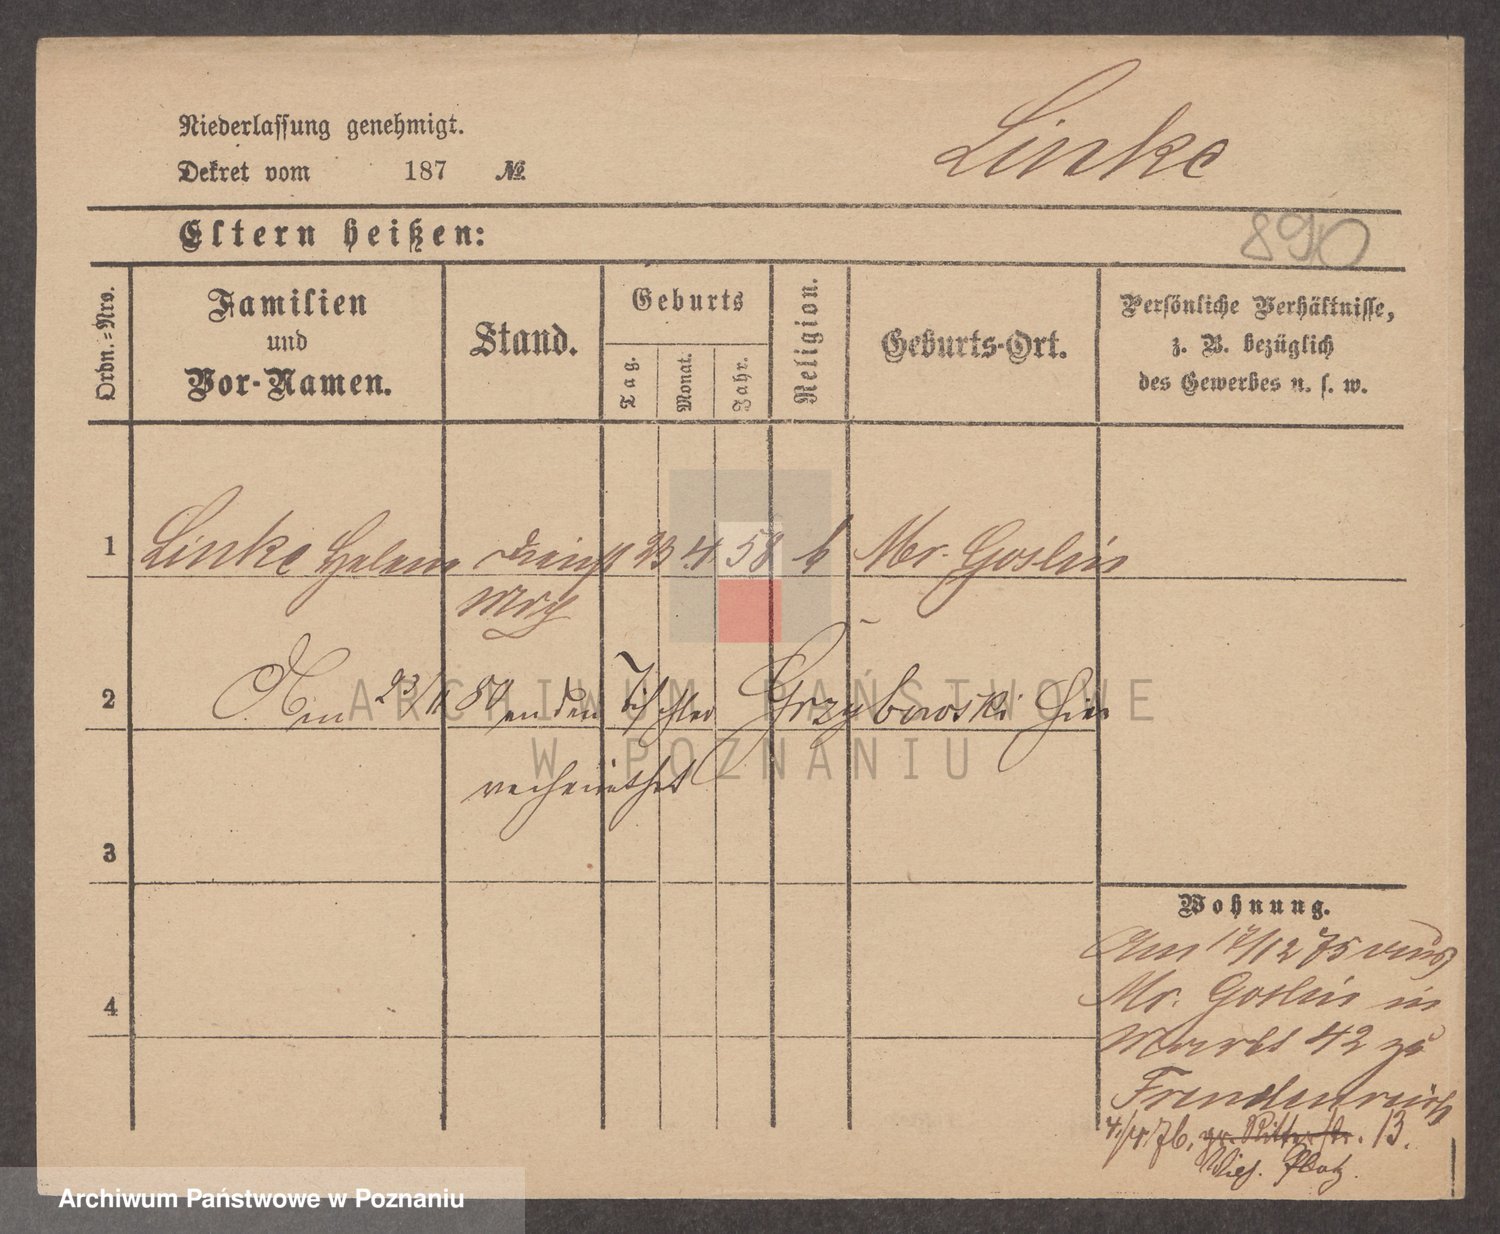 Niederlassung genehmigt.
Linke
Dekret vom 187 №
Eltern heißen:
890
Ordn.-Nro.
Familien
und
Vor-Namen.
Stand.
Geburts
Tag.
Monat.
Jahr.
Religion.
Geburts-Ort.
Persönliche Verhältnisse,
z. B. bezüglich
des Gewerbes u. s. w.
1 Linke Helene Dienst 23 4 58 k Mr. Goslin
mdch
2 23/11 80 an den Tischler Grzybowski hier
verheirathet
3
Wohnung.
Am 17/12 75 aus
4 Mr. Goslin in
Markt 42 zu
Freudenreich
76, gr. Ritterstr. 13.
Wilh. Platz.
ARCHIWUM PAŃSTWOWE
W POZNANIU
Archiwum Państwowe w Poznaniu